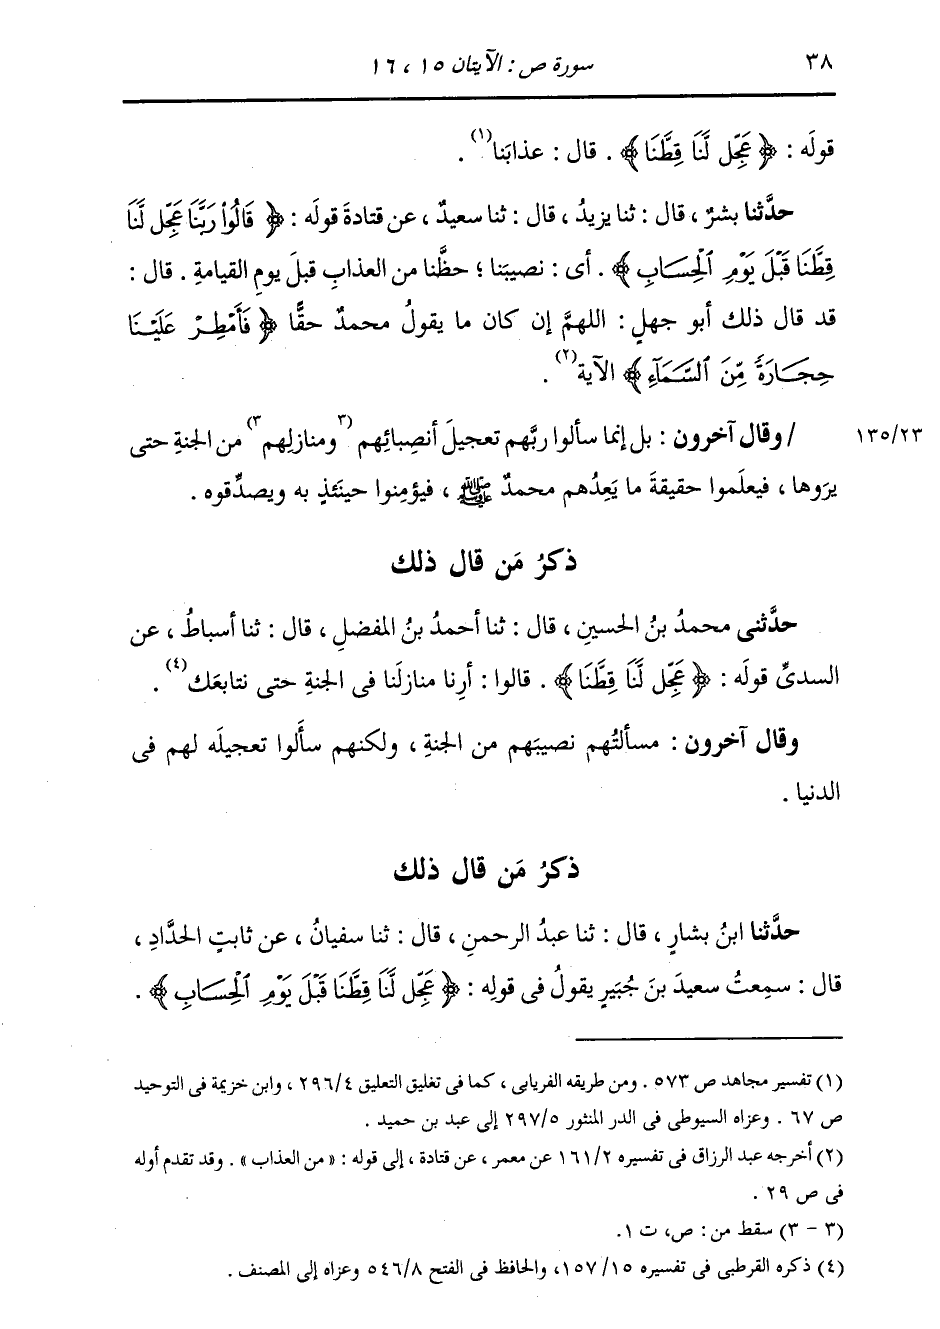 ٣٨ سورة ص : الآيتان ١٥ ، ١٦
قولَه : ﴿ عَجِّل لَّنَا قِطَّنَا ﴾ . قال : عذابَنا(١) .
حدَّثنا بشرٌ ، قال : ثنا يزيدُ ، قال : ثنا سعيدٌ ، عن قتادةَ قولَه : ﴿ قَالُواْ رَبَّنَا عَجِّل لَّنَا
قِطَّنَا قَبْلَ يَوْمِ ٱلْحِسَابِ ﴾ . أى : نصيبَنا ؛ حظَّنا من العذابِ قبلَ يومِ القيامةِ . قال :
قد قال ذلك أبو جهلٍ : اللهمَّ إن كان ما يقولُ محمدٌ حقًّا ﴿ فَأَمْطِرْ عَلَيْنَا
حِجَارَةً مِّنَ ٱلسَّمَآءِ ﴾ الآية(٢) .
١٣٥/٢٣ / وقال آخرون : بل إنما سألوا ربَّهم تعجيلَ أنصِبائِهم (٣ومنازلِهم٣) من الجنةِ حتى
يرَوها ، فيعلَموا حقيقةَ ما يَعِدُهم محمدٌ ﷺ ، فيؤمِنوا حينَئذٍ به ويصدِّقوه .
ذكرُ مَن قال ذلك
حدَّثنى محمدُ بنُ الحسينِ ، قال : ثنا أحمدُ بنُ المفضلِ ، قال : ثنا أسباطُ ، عن
السدىِّ قولَه : ﴿ عَجِّل لَّنَا قِطَّنَا ﴾ . قالوا : أرِنا منازلَنا فى الجنةِ حتى نتابعَك(٤) .
وقال آخرون : مسألتُهم نصيبَهم من الجنةِ ، ولكنهم سأَلوا تعجيلَه لهم فى
الدنيا .
ذكرُ مَن قال ذلك
حدَّثنا ابنُ بشارٍ ، قال : ثنا عبدُ الرحمنِ ، قال : ثنا سفيانُ ، عن ثابتٍ الحدَّادِ ،
قال : سمِعتُ سعيدَ بنَ جُبَيرٍ يقولُ فى قولِه : ﴿ عَجِّل لَّنَا قِطَّنَا قَبْلَ يَوْمِ ٱلْحِسَابِ ﴾ .
(١) تفسير مجاهد ص ٥٧٣ . ومن طريقه الفريابى ، كما فى تغليق التعليق ٢٩٦/٤ ، وابن خزيمة فى التوحيد
ص ٦٧ . وعزاه السيوطى فى الدر المنثور ٢٩٧/٥ إلى عبد بن حميد .
(٢) أخرجه عبد الرزاق فى تفسيره ١٦١/٢ عن معمر ، عن قتادة ، إلى قوله : « من العذاب » . وقد تقدم أوله
فى ص ٢٩ .
(٣ - ٣) سقط من : ص، ت ١.
(٤) ذكره القرطبى فى تفسيره ١٥٧/١٥، والحافظ فى الفتح ٥٤٦/٨ وعزاه إلى المصنف .